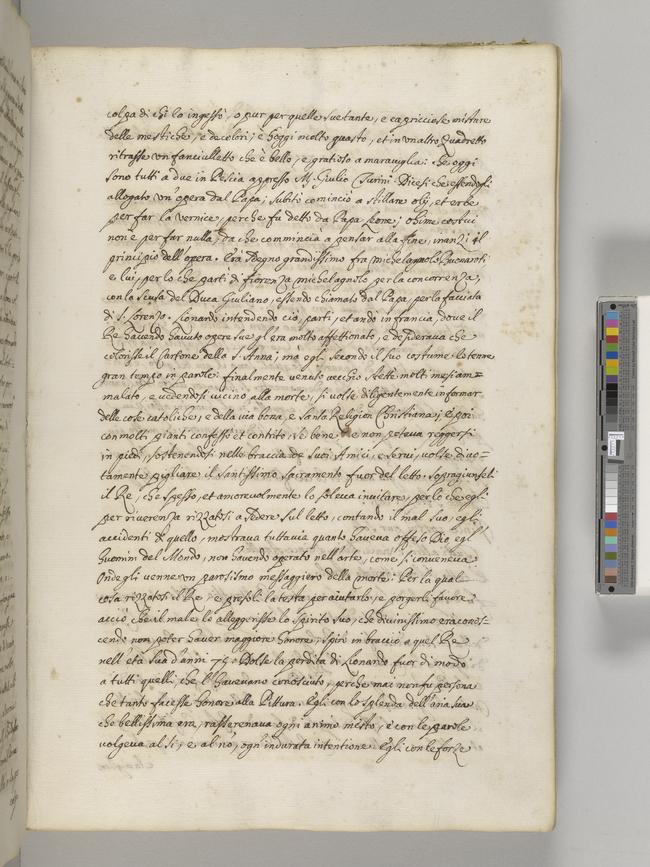 colpa di chi lo ingessò, o pur per quelle sue tante, e capricciose misture
delle mestiche, e de colori; è hoggi molto guasto, et in un altro Quadretto
ritrasse un fanciulletto che è bello, e gratioso a maraviglia: che oggi
sono tutti a due in Pescia appresso M. Giulio Turini. Dicesi che essendosi
allogato un'opera dal Papa; subito cominciò a stillare olij, et erbe
per far la vernice, perche fù detto da Papa Leone; ohime costui
non è per far nulla, da che commincia a pensar alla fine, inanzi il
principio dell'opera. Era sdegno grandissimo fra Michelagnolo Buonanti
e lui, per lo che partì di fiorenza Michelagnolo per la concorrenza,
con la scusa del Duca Giuliano, essendo chiamato dal Papa, per la facciata
di S. Lorenzo. Lionardo intendendo ciò, partì, et andò in francia, dove il
Re havendo havuto opere sue gl'era molto affettionato, e desiderava che
colorisse il Cartone della S. Anna; mà egli secondo il suo costume lo tenne
gran tempo in parole: finalmente venuto vecchio stette molti mesi am=
malato, e vedendosi vicino alla morte, si volse diligentemente informar
delle cose catoliche, e della via bona, e Santa Religion Christiana; e poi
con molti pianti confesso et contrito, se bene e non poteva reggersi
in piedi, sostenendosi nelle braccia de suoi Amici, e servi, volse divo=
tamente pigliare il santissimo sacramento fuor del letto. Sopragiunseli
il Re, che spesso, et amorevolmente lo soleva invitare, per lo che egli
per riverenza rizzatosi a sedere sul letto, contando il mal suo, e gli
accidenti di quello, mostrava tuttavia quanto haveva offeso Dio e gl'
huomini del Mondo, non havendo operato nell'arte, come si conveneva.
Onde gli venne un parosismo messaggiero della morte: Per la qual
cosa rizzatosi il Re, e presoli la testa per aiutarlo, e porgerli favore
acciò che il male lo alleggerisse lo spirito suo, che divinissimo era conos=
cendo non poter haver maggiore honore, spirò in braccio a quel Re
nell'età sua d'anni 75. Dolse la perdita di Lionardo fuor di modo
a tutti quelli che l'havevano conosciuto, perche mai non fu persona
che tanto facesse honore alla Pittura. Egli con lo splendor dell'aria sua
che bellissima era, rasserenava ogni animo mesto, e con le parole
volgeva al sì, e al nò, ogn'indurata intentione. Egli con le forze